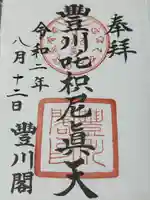 奉拝
豊川吒枳尼眞天
令和二年
八月十二日
豊川閣